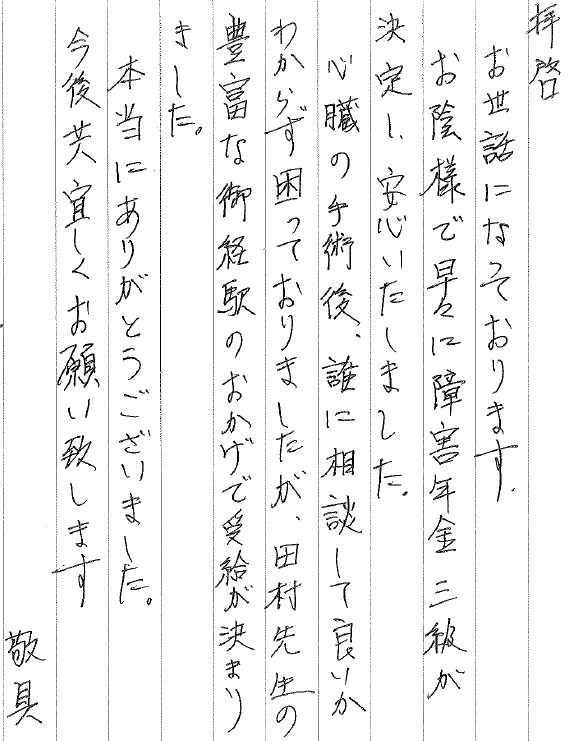 拝啓
お世話になっております.
お陰様で早々に障害年金三級が
決定し、安心いたしました。
心臓の手術後、誰に相談して良いか
わからず困っておりましたが、田村先生の
豊富な御経験のおかげで受給が決まり
ました。
本当にありがとうございました。
今後共宜しくお願い致します
敬具